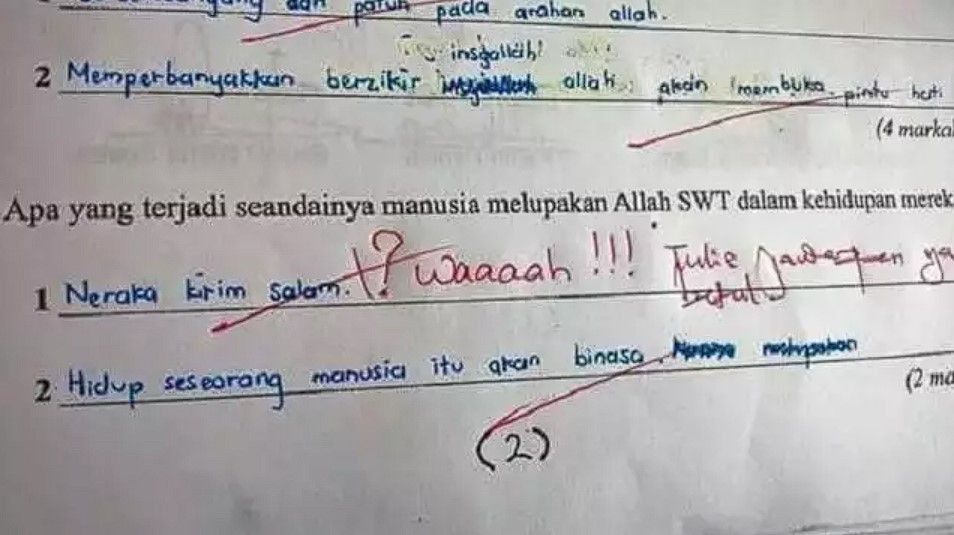 dan patuh pada arahan allah.
insyallah!
2 Memperbanyakkan berzikir allah akan membuka pintu hati
(4 marka
Apa yang terjadi seandainya manusia melupakan Allah SWT dalam kehidupan merek
1 Neraka kirim salam. ? Waaaah !!! Tulis jawapan ya
betul
2 Hidup seseorang manusia itu akan binasa.
(2 ma
(2)